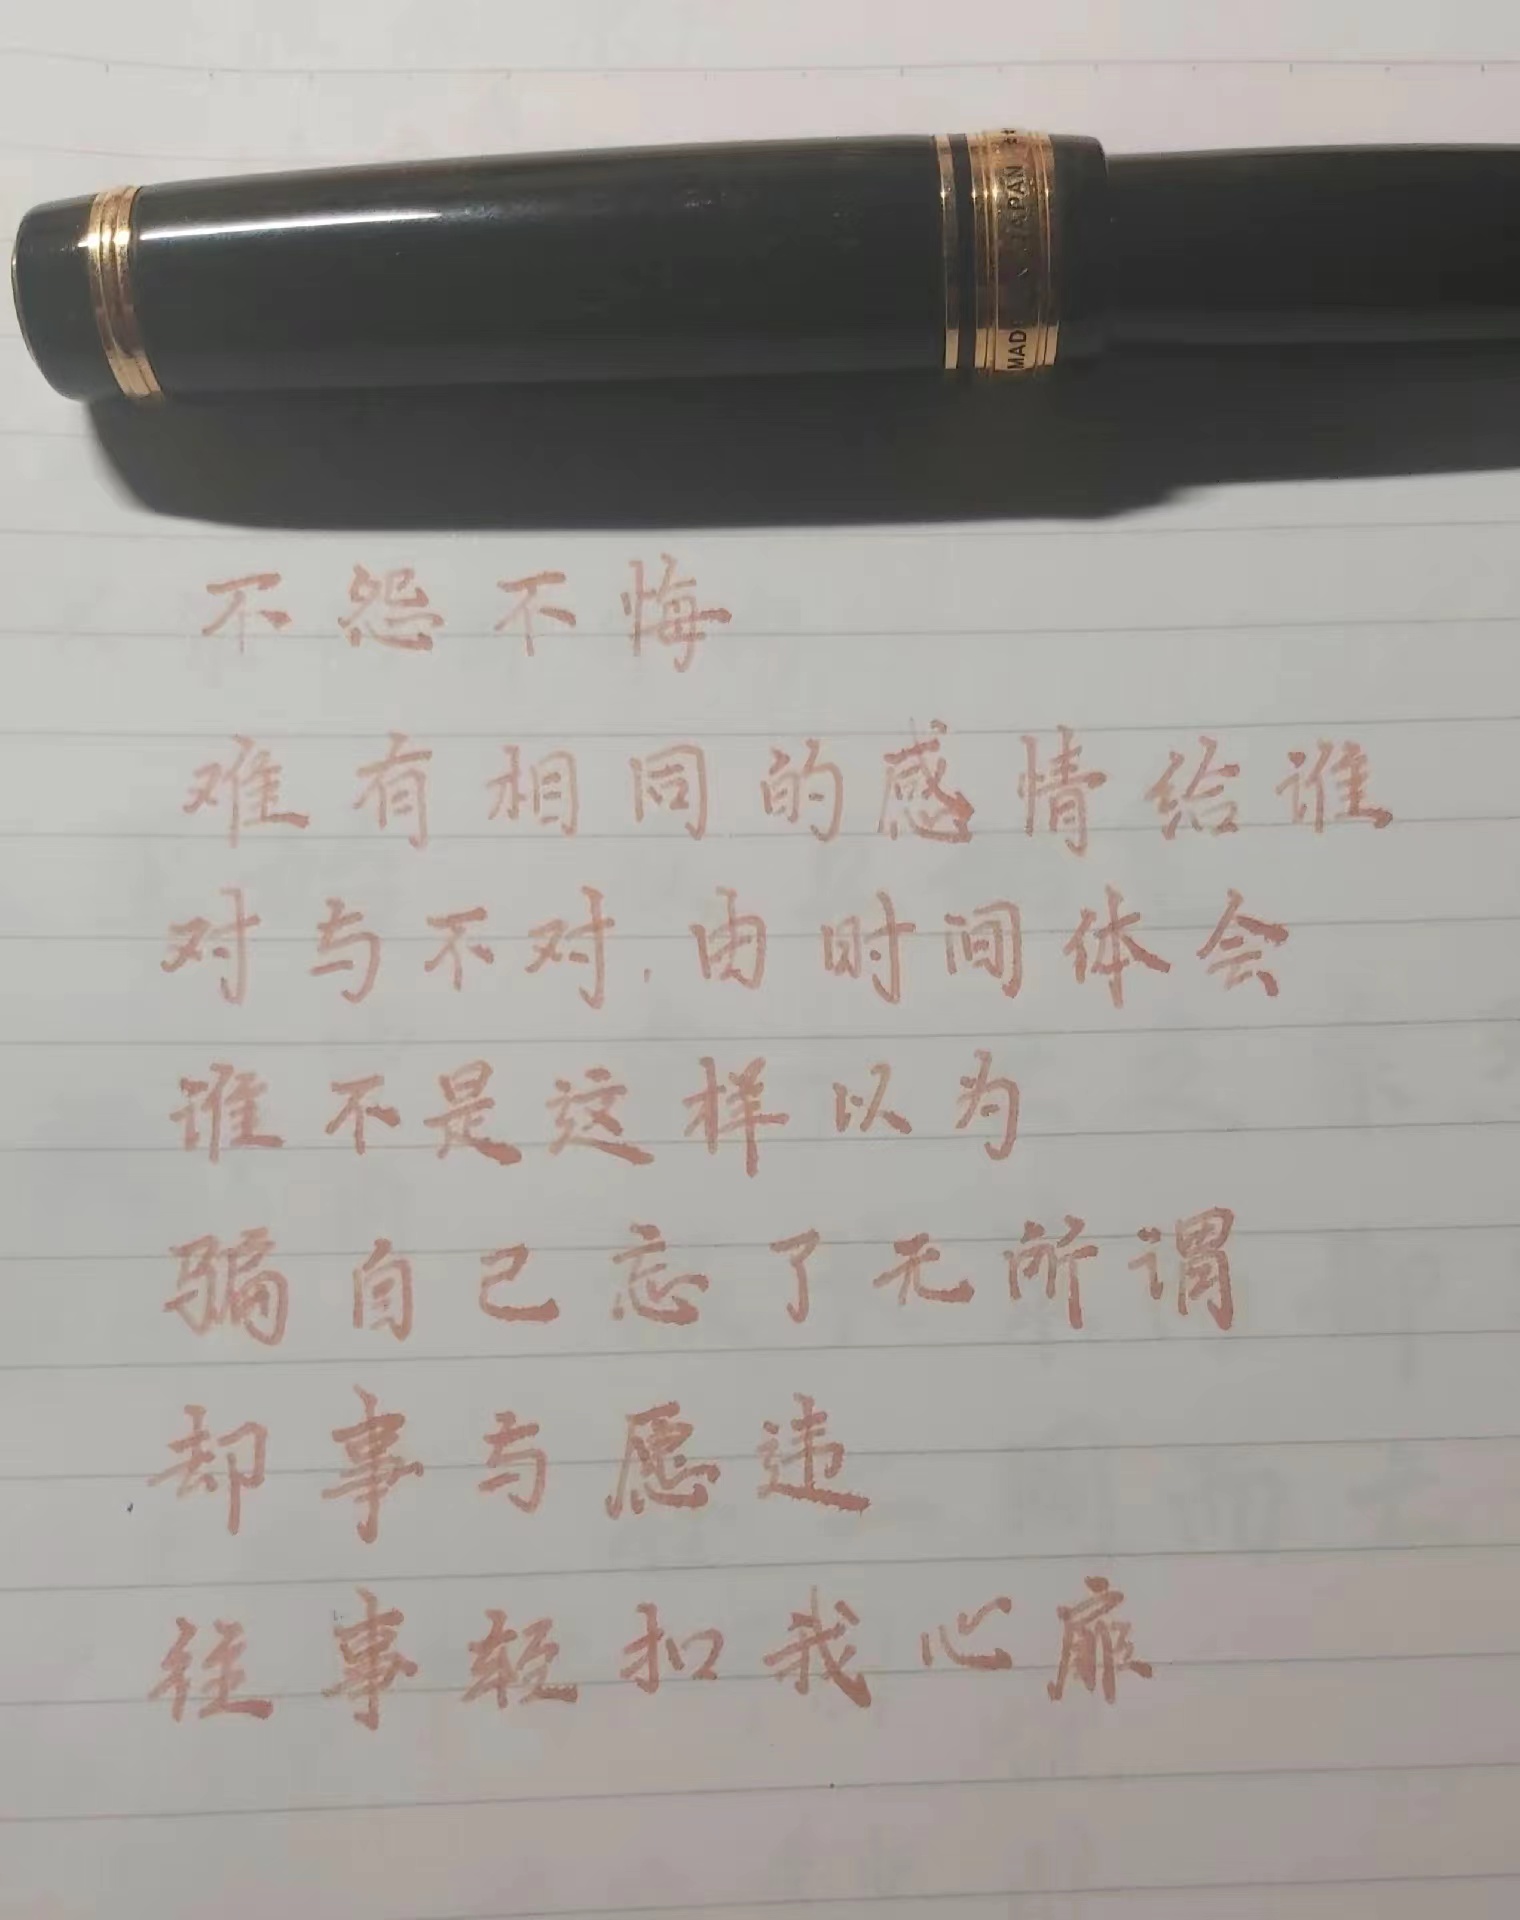 MADE JAPAN
不怨不悔
难有相同的感情给谁
对与不对,由时间体会
谁不是这样以为
骗自己忘了无所谓
却事与愿违
往事轻扣我心扉